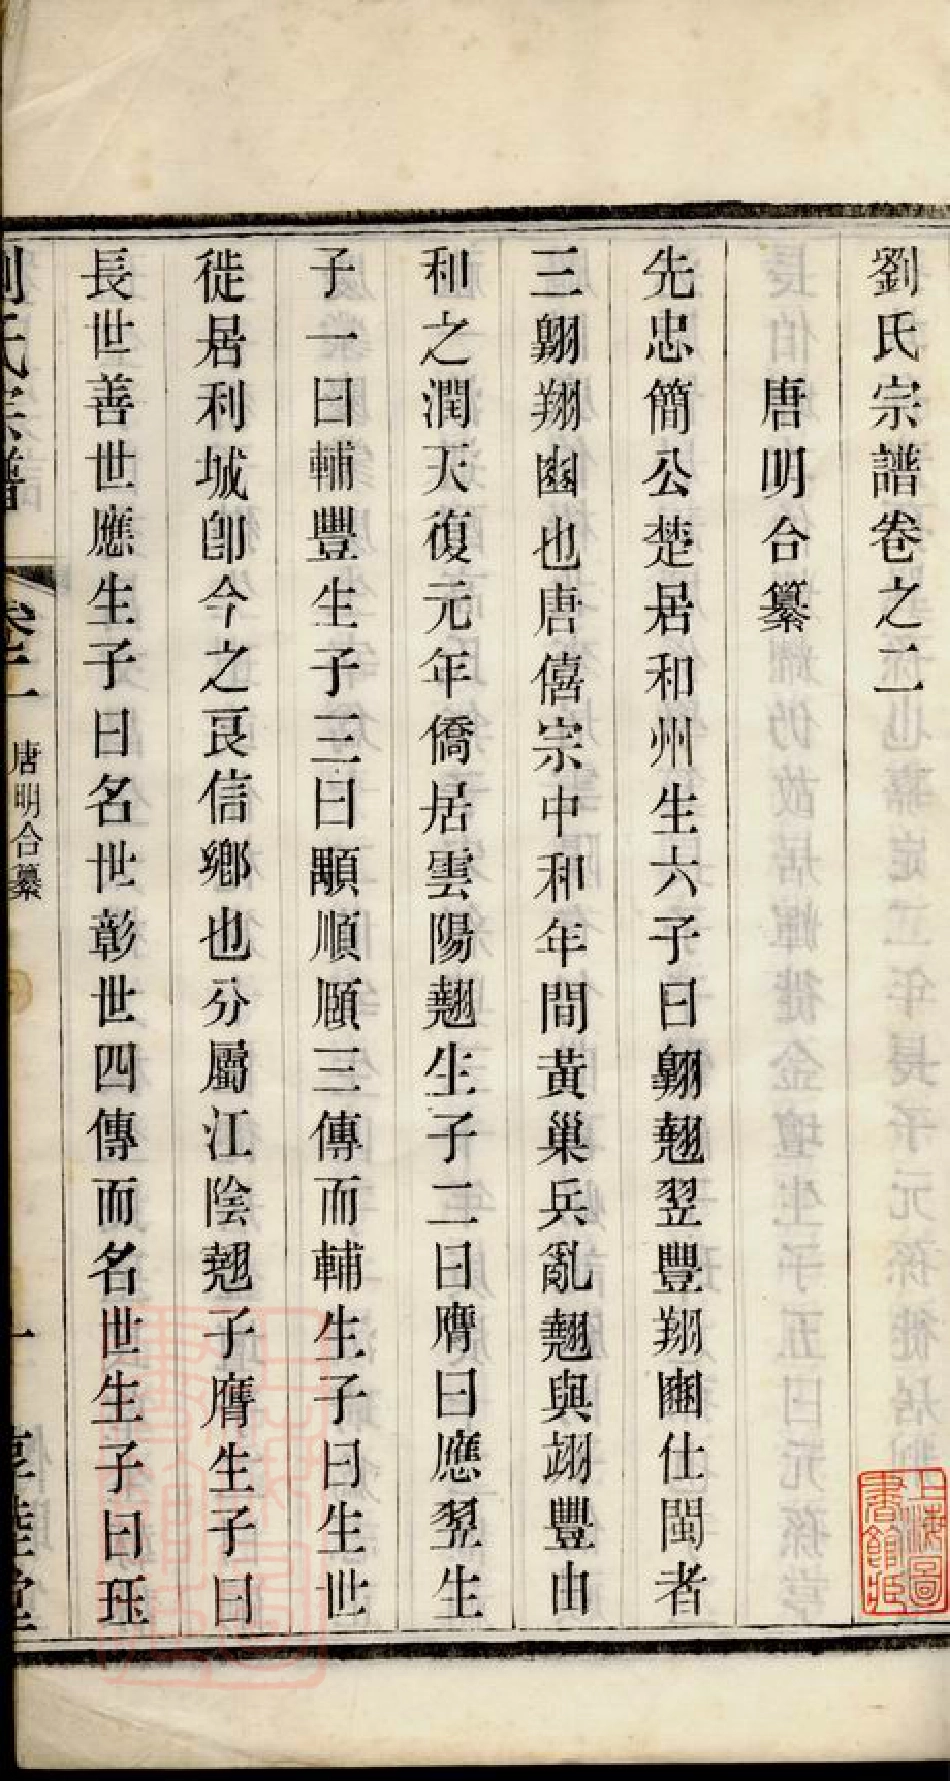 劉氏宗譜卷之二
唐明合纂
先忠簡公楚居和州生六子曰翺翹翌豐翔豳仕閩者
三翺翔豳也唐僖宗中和年間黃巢兵亂翹與翊豐由
和之潤天復元年僑居雲陽翹生子二曰膺曰應翌生
子一曰輔豐生子三曰顒順頤三傳而輔生子曰生世
徙居利城卽今之良信鄉也分屬江陰翹子膺生子曰
長世善世應生子曰名世彰世四傳而名世生子曰珏
劉氏宗譜
卷二
唐明合纂
一
上海圖書館藏